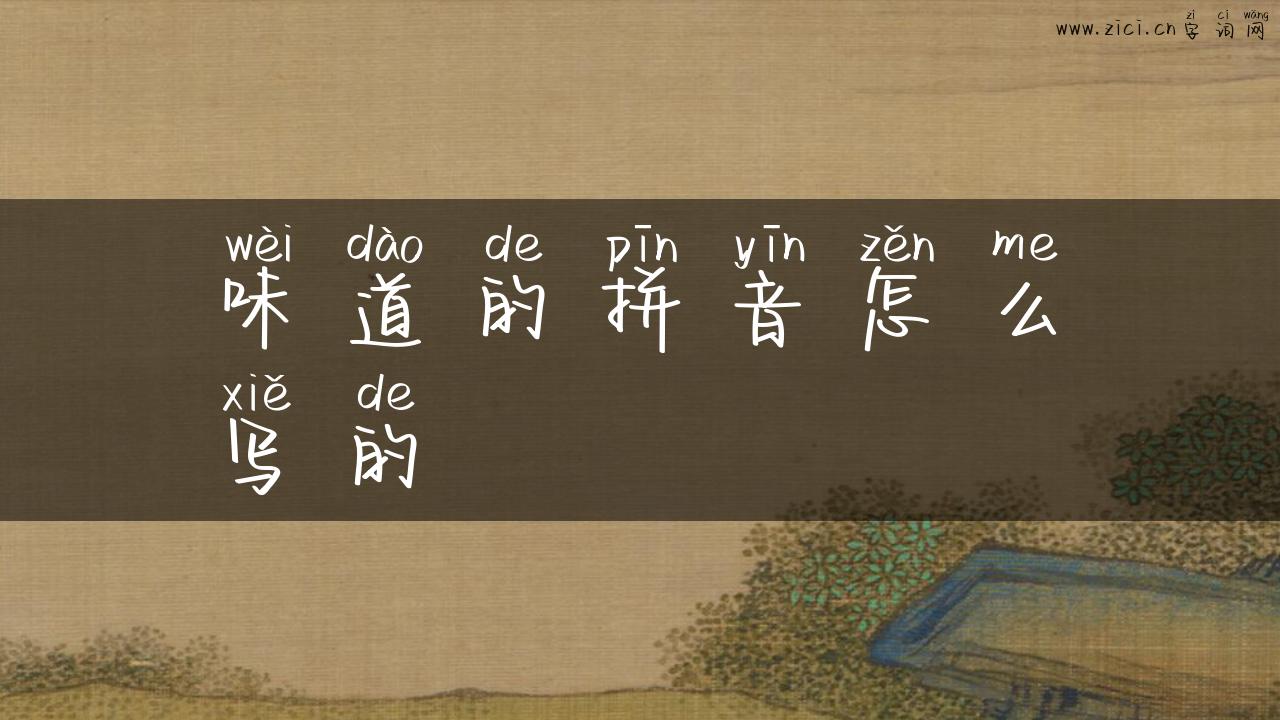 zì cí wǎng
www.zici.cn 字 词 网
wèi dào de pīn yīn zěn me
味 道 的 拼 音 怎 么
xiě de
写 的